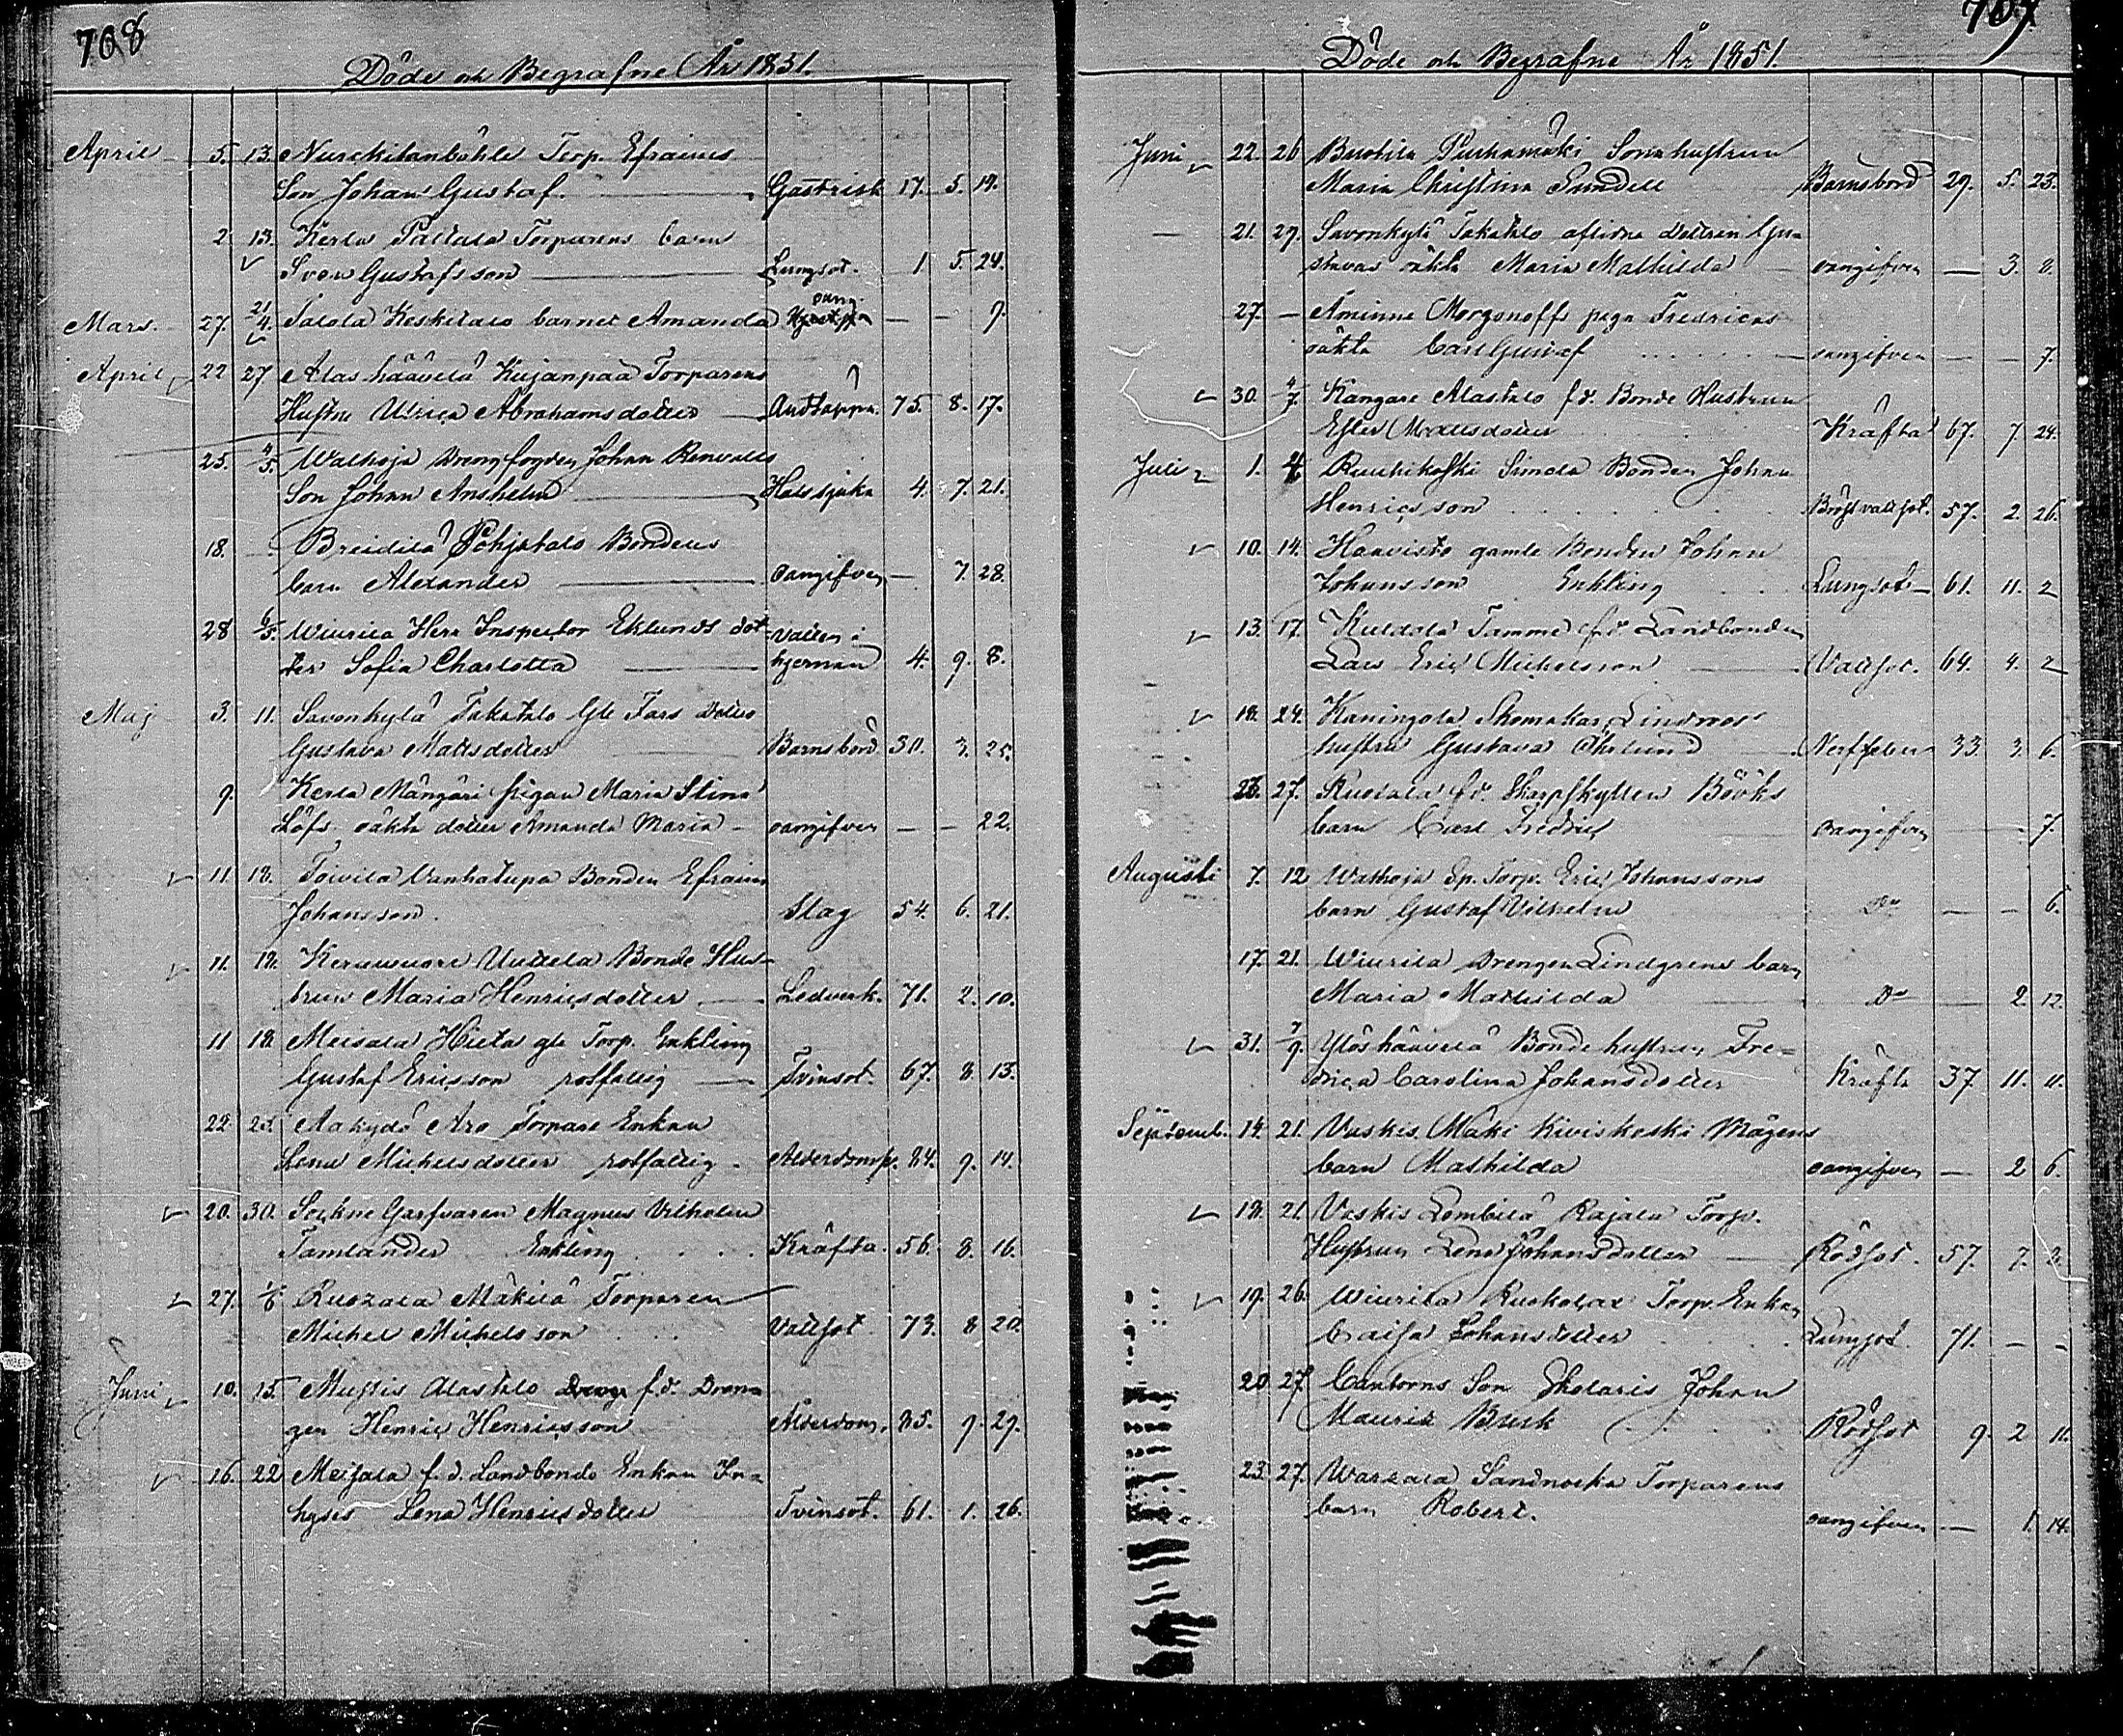 708
Döde och Begrafne År 1851.
April 5. 13. Nurckilanböhle Torp. Efraims
Son Johan Gustaf. Gastrisk 17. 5. 19.
2 13. Kerla Torparens barn
Sven Gustafsson Lungsot. 1 5. 24.
oang.
Mars. 27. 21/4. Talola Keskitalo barnet Amanda — — 9.
April 22 27 Alas häävelä Kujanpää Torparens
Hustru Ulrica Abrahamsdotter Andtäppa. 75. 8. 17.
25. 4/5. Walhoja Drengfogden Johan Renvalls
Son Johan Anshelm Halssjuka 4. 7. 21.
18. — Breidilä Pohjatalo Bondens
barn Alexander oangifven — 7. 28.
28 6/5. Wiurila Herr Inspector Eklunds dot- Vatten i
ter Sofia Charlotta hjernan 4. 9. 8.
Maj 3. 11. Savonkylä Takatalo Gle Fars Dotter
Gustava Mattsdotter Barnsbörd 30. 7. 25.
9. Kerla Mångäri pigan Maria Stina
Löfs oäkta dotter Amanda Maria oangifven — — 22.
11. 18. Toivila Vanhatupa Bonden Efraim
Johansson. Slag 54. 6. 21.
11. 18. Keruwuori Uutela Bonde Hus-
trun Maria Henricsdotter Ledverk. 71. 2. 10.
11 18. Meisala Hieta gle Torp. Enkling
Gustaf Ericsson rotfattig Tvinsot. 67. 8. 13.
22 25. Aakydö Aro Torpare Enkan
Lena Michelsdotter rotfattig. Ålderdoms. 84. 9. 14.
20. 30. Sockne Garfvaren Magnus Vilhelm
Tamlander Enkling Kräfta. 56. 8. 16.
27. 1/6 Ruozala Mäkilä Torparen
Michel Michelsson Vattsot 73. 8 20.
Juni 10. 15. Alastalo f.d. Dren-
gen Henric Henricsson Ålderdom. 85. 9. 29.
16. 22 Meisala f.d. Landbonde Enkan In-
hyses Lena Henricsdotter Tvinsot. 61. 1. 26.
709
Döde och Begrafne År 1851.
Juni 22. 26 Purhamäki Sonahustrun
Maria Christina Lundell Barnsbörd 29. 5. 23.
— 21. 29. Savonkylä Takatalo aflidna dottren Gu-
stavas oäkta Maria Mathilda — oangifven — 3. 8.
27. — Åminne Morgonoffs piga Fredricas
oäkta Carl Gustaf oangifven — — 7.
30. 4/7. Kangare Alastalo f.d. Bonde Hustrun
Ester Mattsdotter Kräfta 67. 7. 24.
Juli 1. 4. Ruuhikoski Simola Bonden Johan
Henricsson Bröstvattsot. 57. 2. 26.
10. 14. Haavisto gamle Bonden Johan
Johansson Enkling Lungsot — 61. 11. 2
13. 17. Kuldala Tamme f.d. Landbonden
Lars Eric Michelsson Vattsot. 64. 4. 2
18. 24. Kaningola Skomakar Lindroos
hustru Gustava Öhrlund Nerffeber 33. 3. 6.
23. 27. Ruotala f.d. Skarpskytten Bööks
barn Carl Fredric oangifven — — 7.
Augusti 7. 12 Walhoja Sp. Torp. Eric Johanssons
barn Gustaf Vilhelm Do — — 6.
17. 21. Wiurila Drengen Lindgrens barn
Maria Mathilda Do — 2 12.
31. 7/9. Ylös häävelä Bonde hustrun Fre-
drica Carolina Johansdotter Kräfta 37. 11. 11.
Septemb. 14. 21. Vaskis Mäki Kiviskoski Mågens
barn Mathilda oangifven — 2 6.
18. 21. Vaskis Lembilä Rajala Torp.
Hustrun Lena Johansdotter Rödsot. 57. 7. 2.
19. 26. Wiurila Ruskolax Torp. Enkan
Caisa Johansdotter Lungsot. 71. — -
20 27. Cantorns Son Skolaris Johan
Mauritz Rödsot 9. 2 11.
23. 27. Warzala Torparens
barn Robert. oangifven — 1. 14.